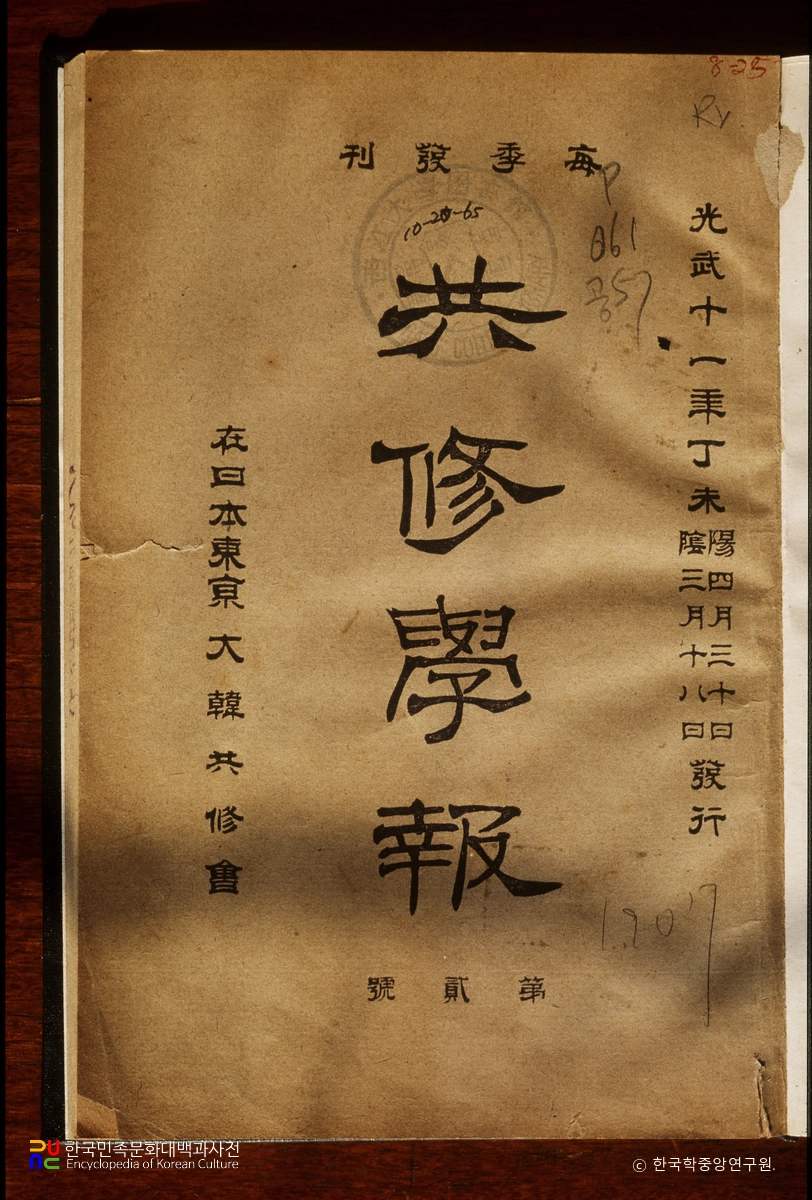 8-25
Rv
每季發刊
10-20-65
P
061
공57
光武十一年丁未
陽四月三十日
陰三月十八日
發行
共修學報
在日本東京大韓共修會
1907
第貳號
한국민족문화대백과사전
Encyclopedia of Korean Culture
© 한국학중앙연구원.